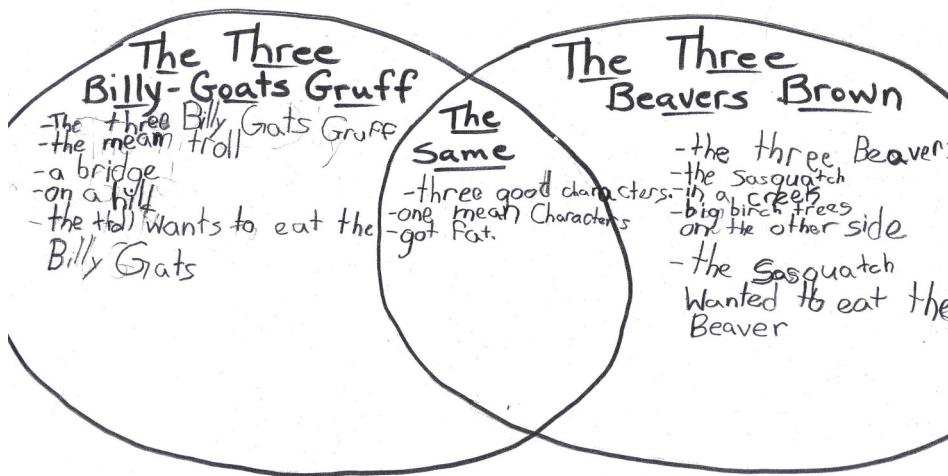 The Three
Billy-Goats Gruff
-The three Billy Gats Gruff
-the mean troll
-a bridge
-on a hill
-the troll wants to eat the
Billy Gats
The
Same
-three good characters.
-one mean Characters
-got fat.
The Three
Beavers Brown
-the three Beavers
-the Sasquatch
-in a creek
-big birch trees
on the other side
-the Sasquatch
Wanted to eat the
Beaver